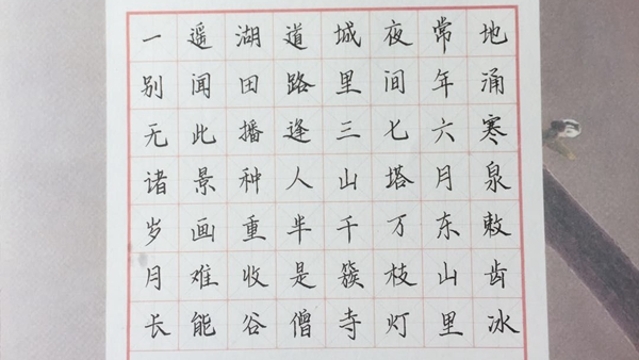 一别无诸岁月长
遥闻此景画难能
湖田播种重收谷
道路逢人半是僧
城里三山千簇寺
夜间七塔万枝灯
常年六月东山里
地涌寒泉敕齿冰